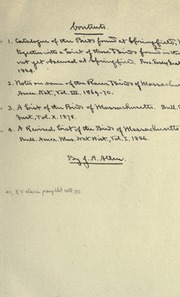 Contents.
1. Catalogue of the Birds found at Springfield,
together with a List of those Birds found
not yet observed at Springfield. Proc. Essex Inst
1864.
2. Notes on some of the Rarer Birds of Massachusetts
Amer. Nat., Vol. III. 1869-70.
3. A List of the Birds of Massachusetts. Bull.
Inst., Vol. X. 1878.
4. A Revised List of the Birds of Massachusetts
Bull. Amer. Mus. Nat. Hist., Vol. I. 1886.
By J. A. Allen